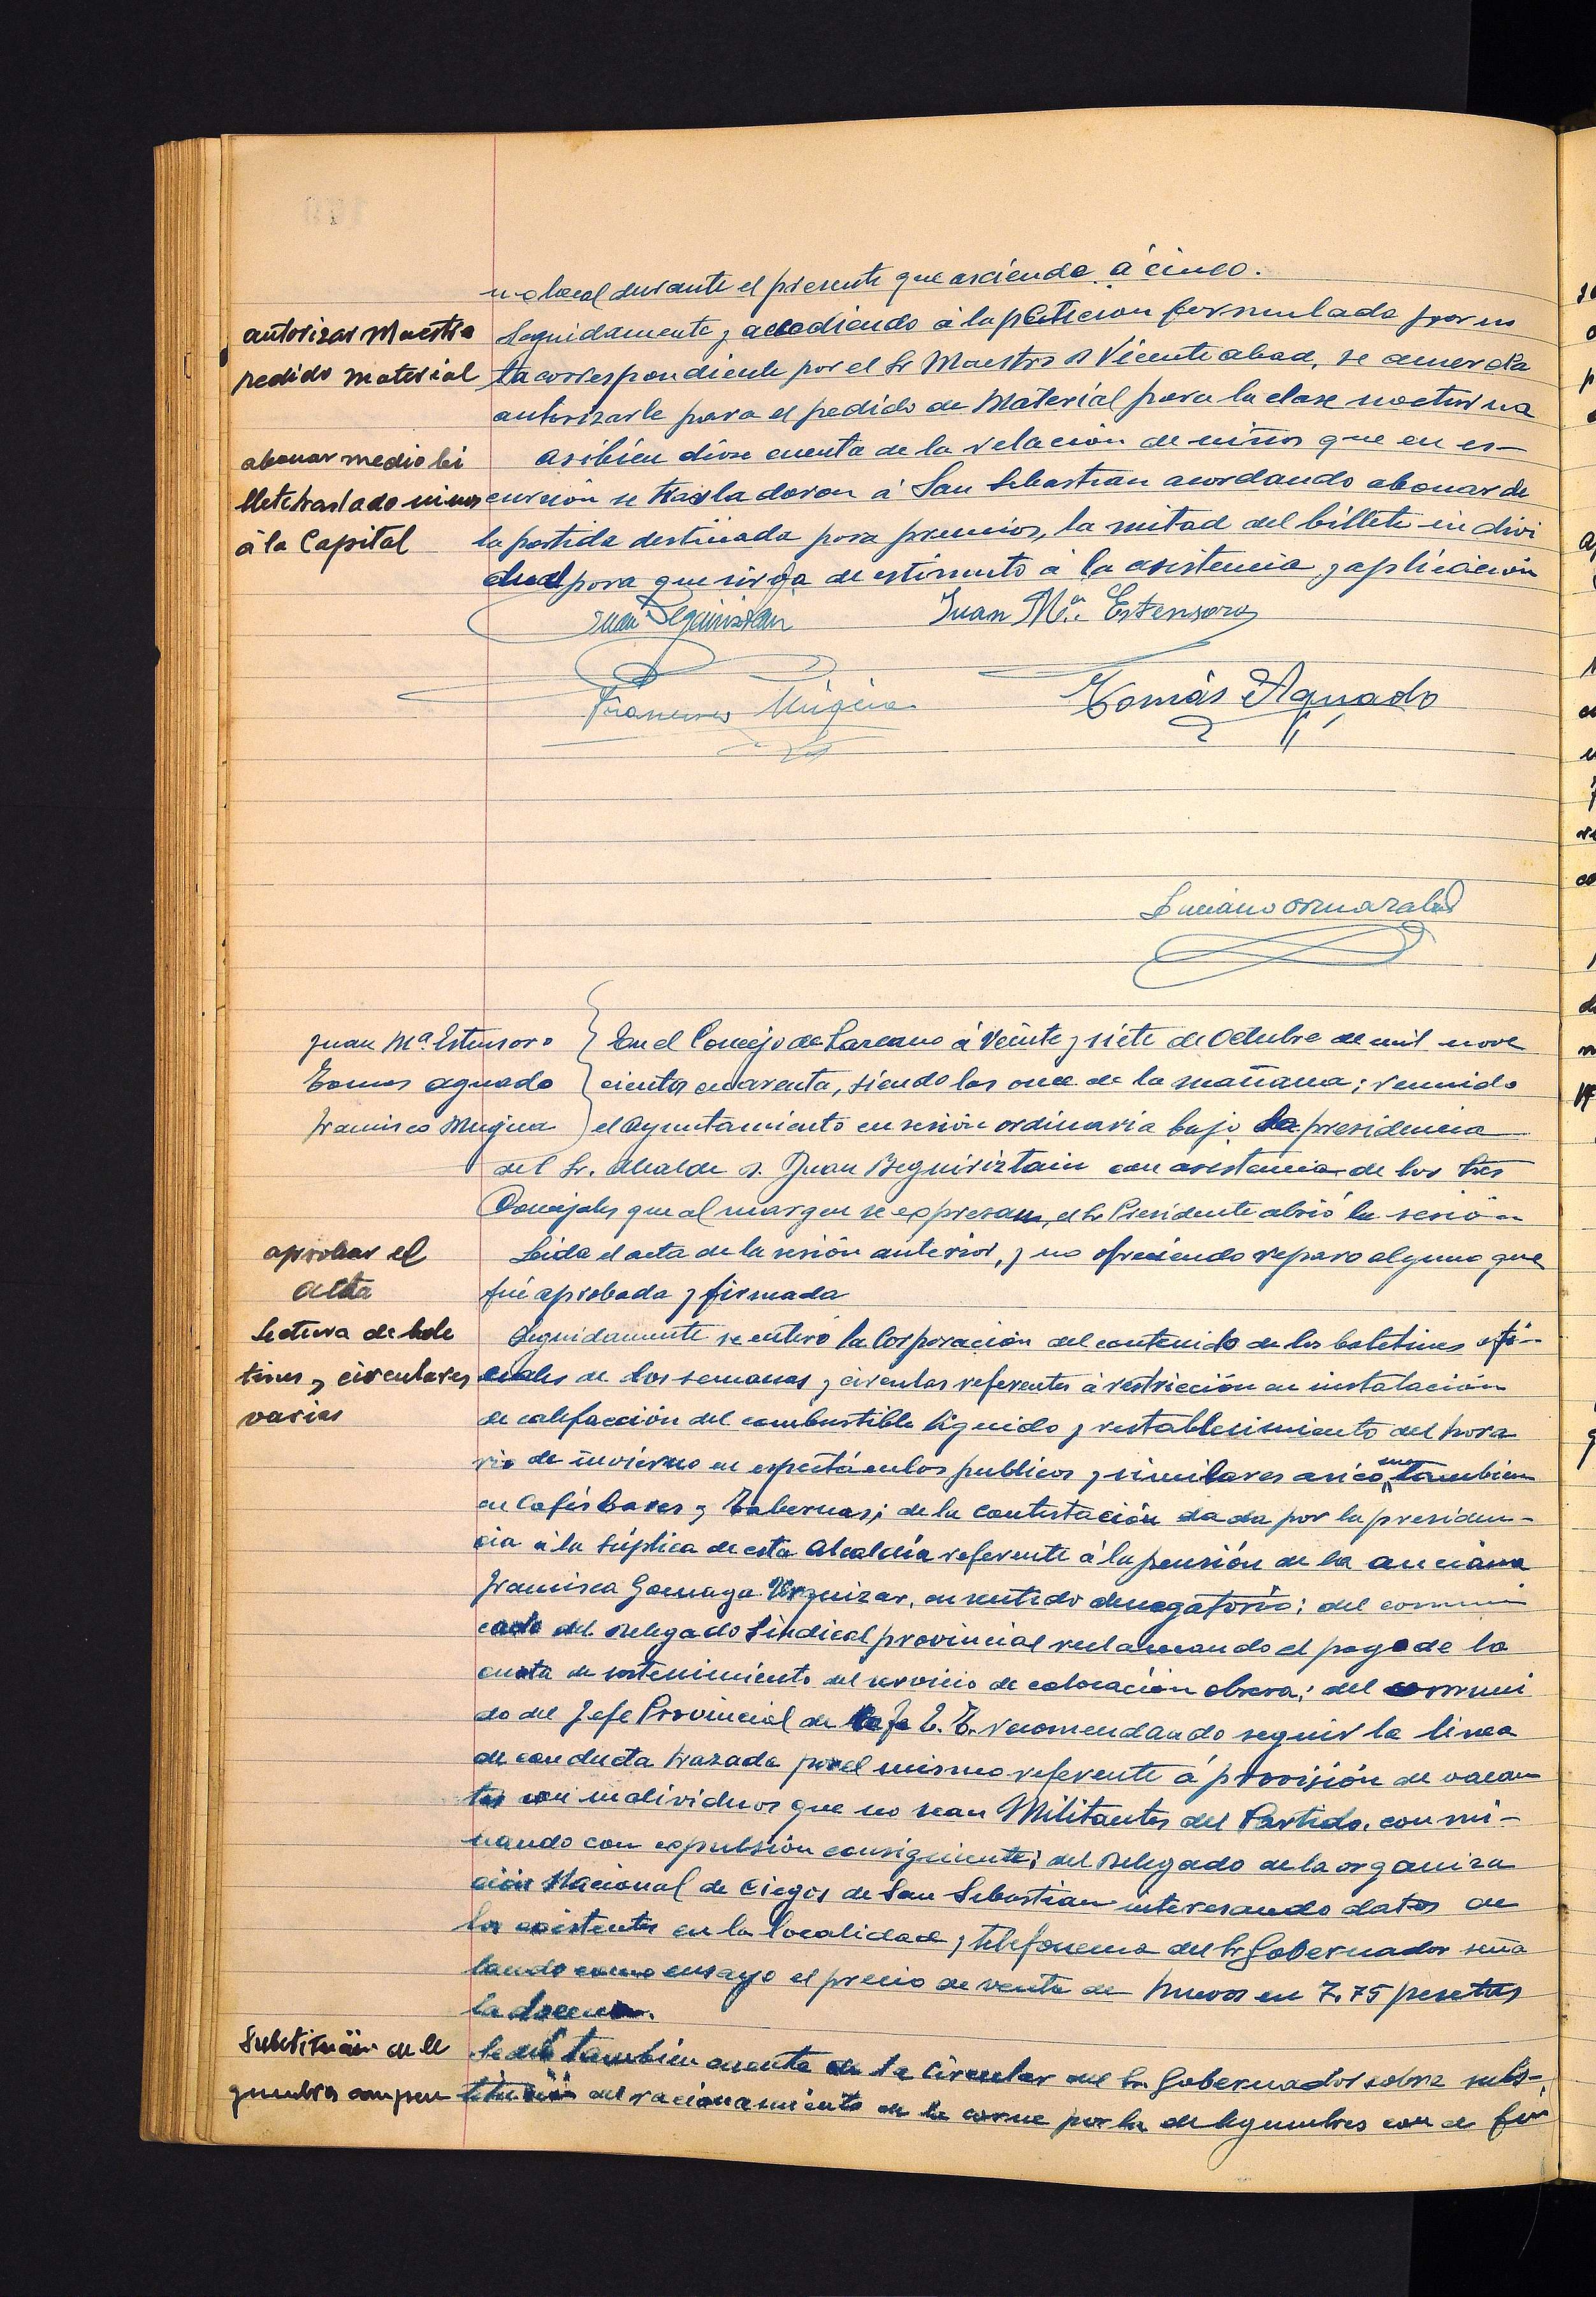 no local durante el presente que asciende á cinco.
autorizar Maestro
pedido material
Seguidamente y accediendo á la peticion formulada por no
ta correspondiente por el Sr Maestro D Vicente abad, se acuerda
autorizarle para el pedido de Material para la clase nocturna
abonar medio bi
llete traslado niños
á la Capital
asibien dióse cuenta de la relación de niños que en es-
cursión se trasladaron á San Sebastian acordando abonar de
la partida destinada para premios, la mitad del billete indivi
dual para que sirva de estimulo á la asistencia y aplicación
Juan Beguiristain
Juan Mª. Estensoro
Francisco Mugica
Tomás Aguado
Luciano Ormazabal
Juan Mª. Estensoro
Tomas aguado
Francisco Mugica
En el Concejo de Lazcano á Veinte y siete de Octubre de mil nove
cientos cuarenta, siendo las once de la mañana; reunido
el Ayuntamiento en sesión ordinaria bajo la presidencia
del Sr. Alcalde D. Juan Beguiriztain con asistencia de los tres
Concejales que al margen se expresan, el Sr Presidente abrió la sesión
aprobar el
acta
Leida el acta de la sesión anterior, y no ofreciendo reparo alguno que
fué aprobada y firmada
Lectura de bole
tines y circulares
varias
Seguidamente se enteró la Corporación del contenido de los boletines ofi-
ciales de dos semanas y circular referentes á restricción en instalación
de calefacción del combustible liquido y restablecimiento del hora
rio de invierno en espectáculos publicos y similares asi como tambien
en Cafés Bares y Tabernas; de la contestación dada por la presiden-
cia á la súplica de esta Alcaldía referente á la pensión de la anciana
Francisca Gamaga Urquizar, en sentido denegatorio; del comuni
cado del Delegado Sindical provincial reclamando el pago de la
cuota de sostenimiento del servicio de colocación obrera; del comuni
do del Jefe Provincial de la fe E. T. recomendando seguir la linea
de conducta trazada por el mismo referente á provisión de vacan
tes con individuos que no sean Militantes del Partido, conmi-
nando con expulsión consiguiente; del Delegado de la organiza
ción Nacional de Ciegos de San Sebastian interesando datos de
los existentes en la localidad y telefonema del Sr Gobernador seña
lando como ensayo el precio de venta de huevos en 7.75 pesetas
la docena.
Substitución de le
gumbres con pen
Se dió también cuenta de la Circular del Sr. Gobernador sobre subs-
titución del racionamiento de la carne por la de legumbres con el fin